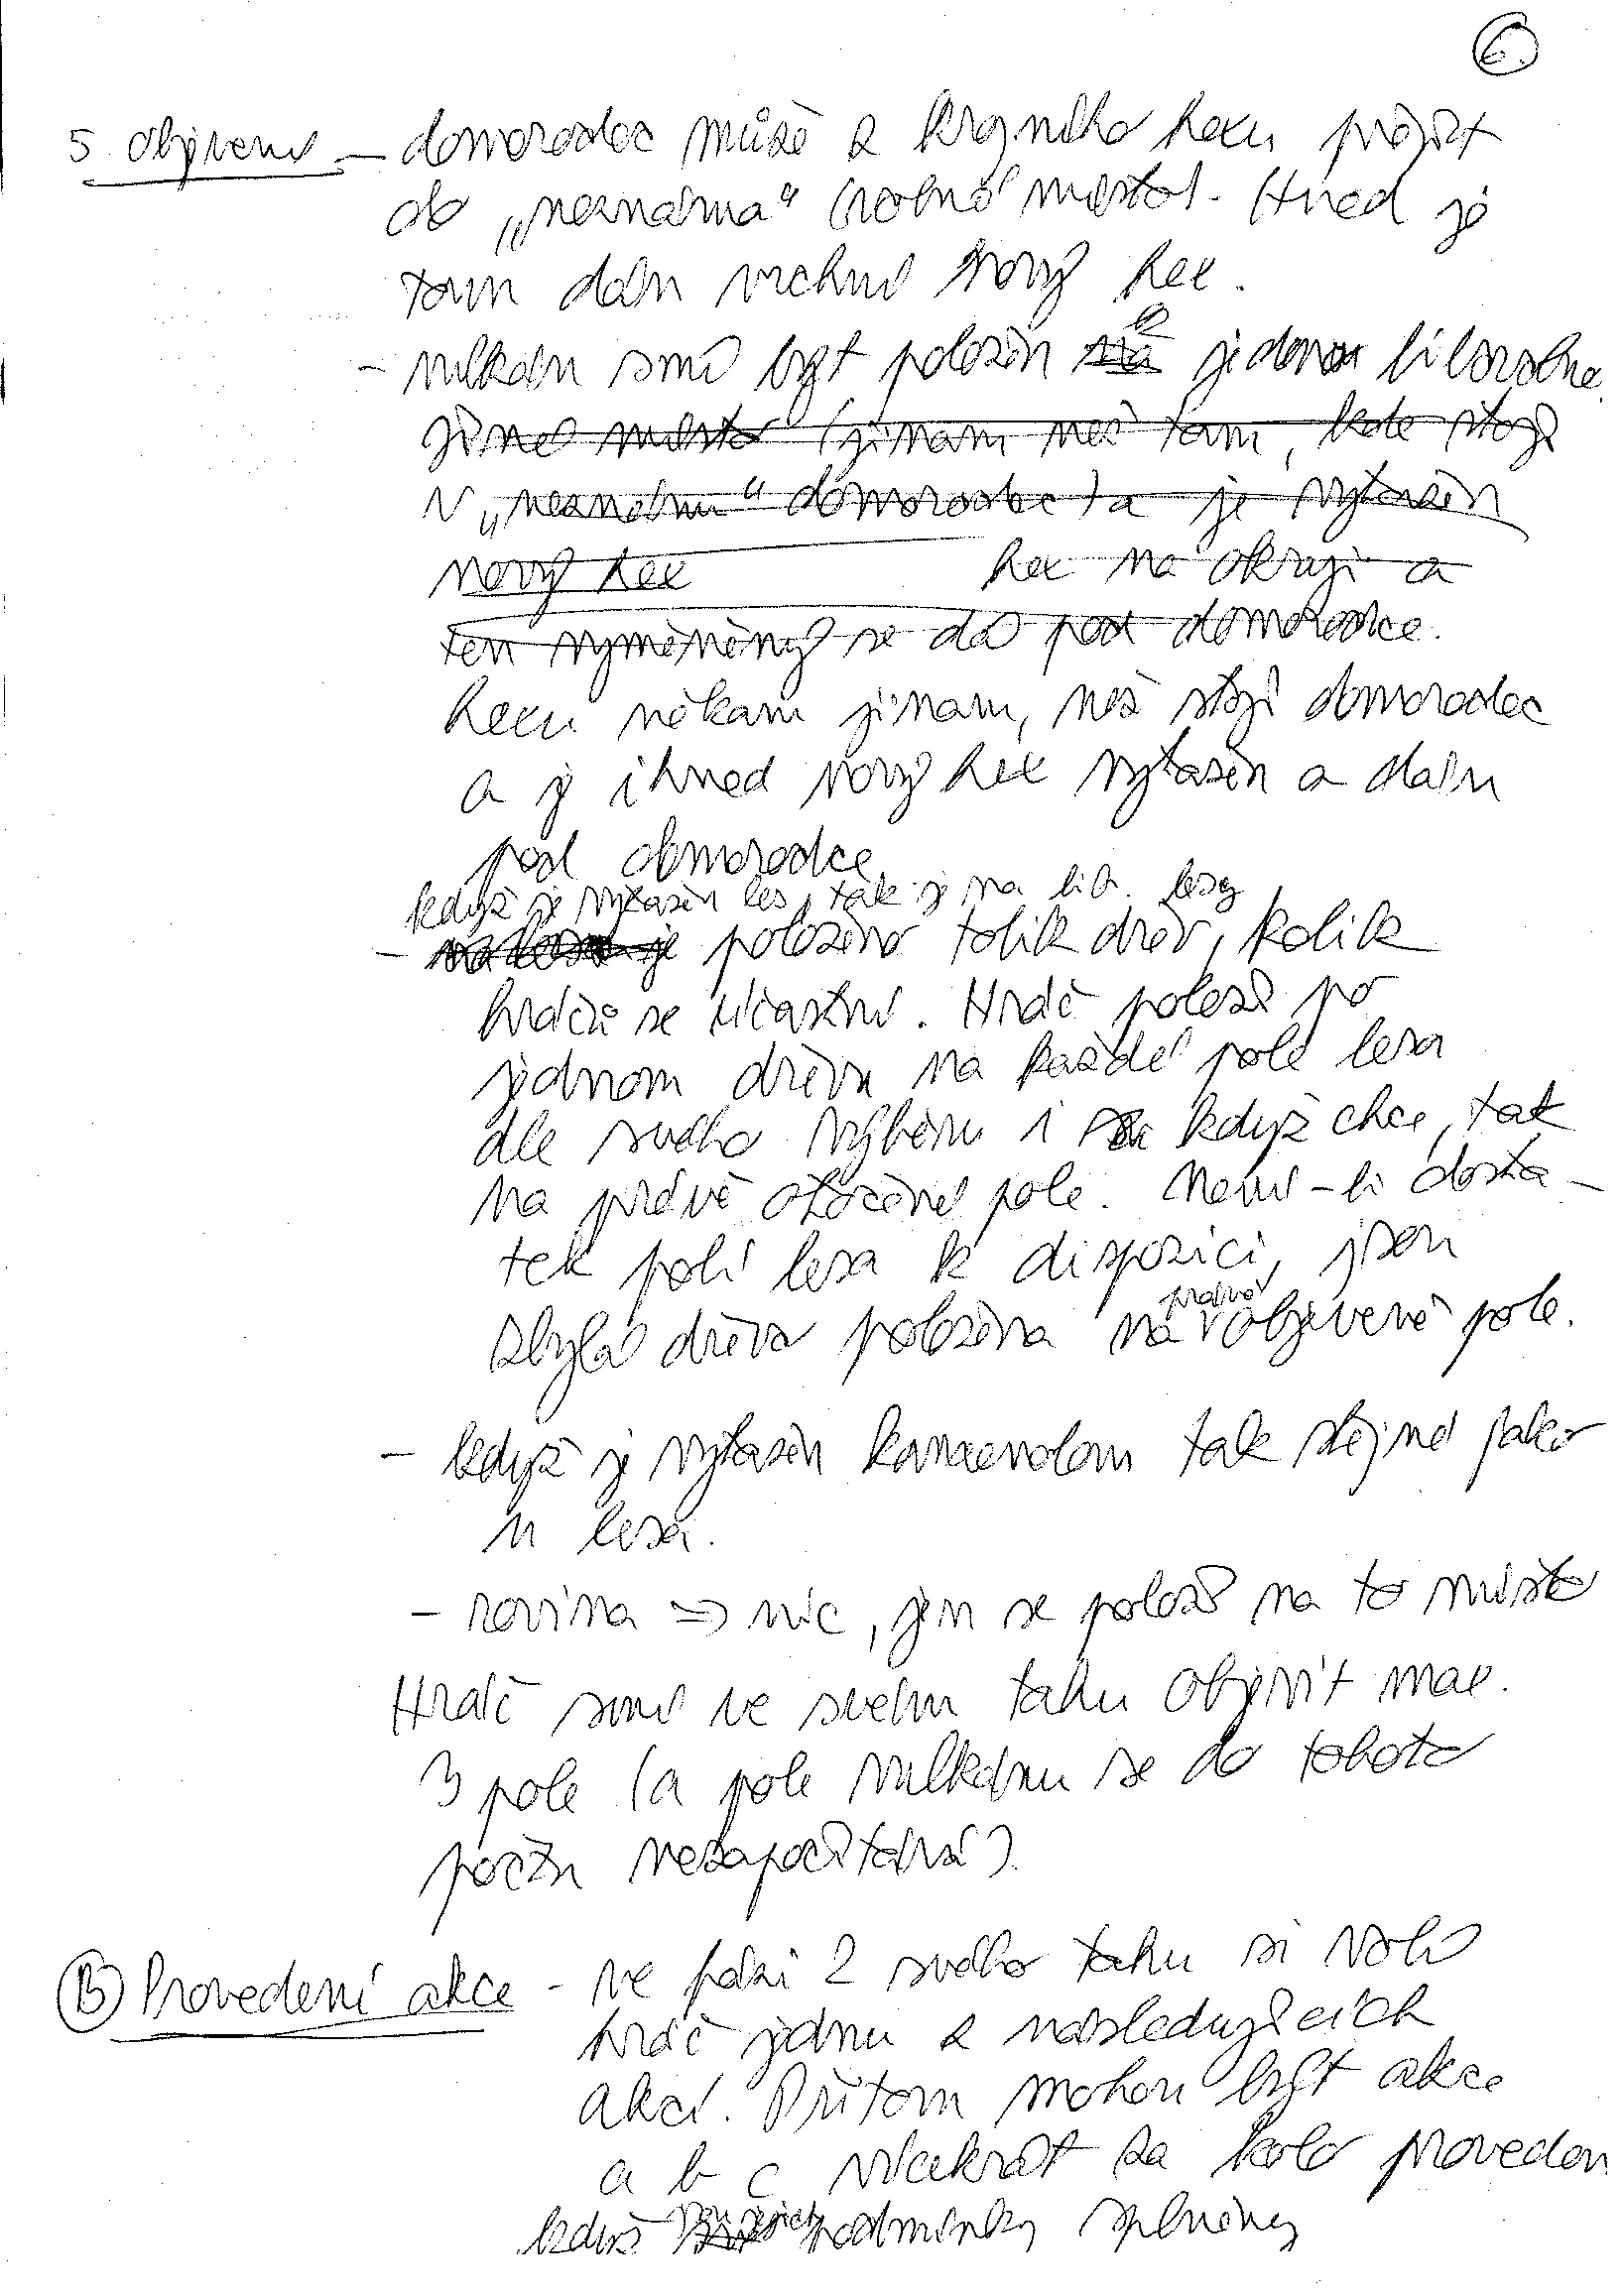 6.
5. Objevení – domorodec může z krajního hexu přejít
do „neznáma“ (volné místo). Hned je
tam dán vrchní nový hex.
– vulkán smí být položen k jednomu libovolné.
jiné místo (jinam než tam, kde stojí
v „neznámu“ domorodec) a je vytažen
nový hex hex na okraji a
ten vyměněný se dá pod domorodce.
hexu někam jinam, než stojí domorodec
a je ihned nový hex vytažen a dán
pod domorodce.
když je vytažen les, tak je na lib. lesy
– položeno tolik dřev, kolik
hráčů se účastní. Hráč položí po
jednom dřevu na každé pole lesa
dle svého výběru i když chce, tak
na právě otočené pole. Není-li dosta-
tek polí lesa k dispozici, jsou
zbylá dřeva položena na právě objevené pole.
– když je vytažen kamenolom tak stejně jako
u lesa.
– rovina => nic, jen se položí na to místo
Hráč smí ve svém tahu objevit max.
3 pole (a pole vulkánu se do tohoto
počtu nezapočítává).
B Provedení akce – ve fázi 2 svého tahu si volí
hráč jednu z následujících
akcí. Přitom mohou být akce
a b c vícekrát za kolo proveden
když jejich podmínky splněny